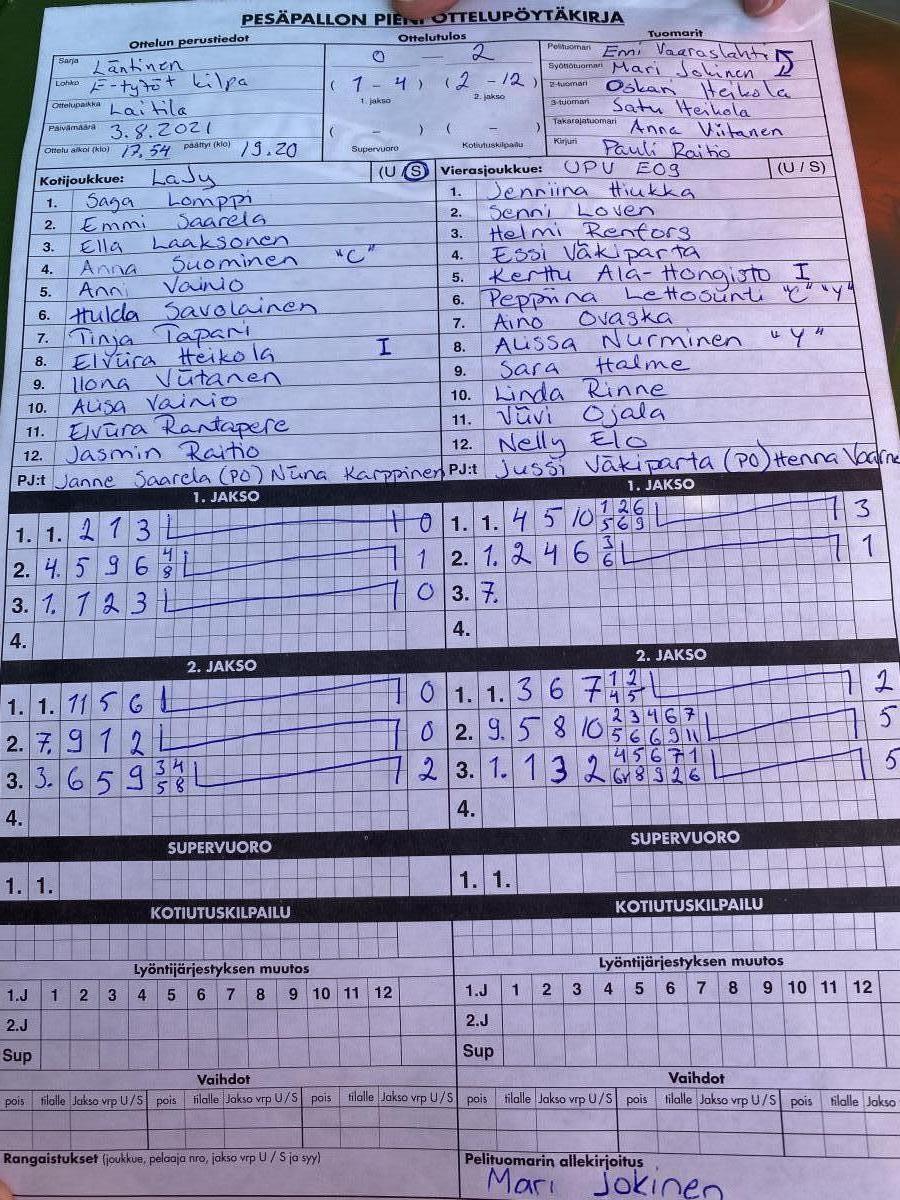 PESÄPALLON PIENI OTTELUPÖYTÄKIRJA
Ottelun perustiedot
Sarja Läntinen
Lohko E-tytöt kilpa
Ottelupaikka Laitila
Päivämäärä 3.8.2021
Ottelu alkoi (klo) 17.54 päättyi (klo) 19.20
Ottelutulos
0 - 2
(1 - 4) (2 - 12)
1. jakso 2. jakso
( - ) ( - )
Supervuoro Kotiutuskilpailu
Tuomarit
Pelituomari Emi Vaaraslahti
Syöttötuomari Mari Jokinen
2-tuomari Oskari Heikola
3-tuomari Satu Heikola
Takarajatuomari Anna Viitanen
Kirjuri Pauli Raitio
Kotijoukkue: LaJy (U S)
1. Saga Lomppi
2. Emmi Saarela
3. Ella Laaksonen
4. Anna Suominen "C"
5. Anni Vainio
6. Hulda Savolainen
7. Tinja Tapani
8. Elviira Heikola I
9. Ilona Viitanen
10. Aliisa Vainio
11. Elviira Rantapere
12. Jasmin Raitio
PJ:t Janne Saarela (PO) Niina Karppinen
Vierasjoukkue: UPU E09 (U / S)
1. Jenniina Hiukka
2. Senni Loven
3. Helmi Renfors
4. Essi Väkiparta
5. Kerttu Ala-Hongisto I
6. Peppiina Lehtosunti "C" "Y"
7. Aino Ovaska
8. Aliisa Nurminen "Y"
9. Sara Halme
10. Linda Rinne
11. Viivi Ojala
12. Nelly Elo
PJ:t Jussi Väkiparta (PO) Henna
1. JAKSO
1. 1. 2 1 3 0
2. 4. 5 9 6 4 8 1
3. 1. 1 2 3 0
4.
1. JAKSO
1. 1. 4 5 10 1 2 6 5 6 9 3
2. 1. 2 4 6 3 6 1
3. 7.
4.
2. JAKSO
1. 1. 11 5 6 0
2. 7. 9 1 2 0
3. 3. 6 5 9 3 4 5 8 2
4.
2. JAKSO
1. 1. 3 6 7 1 2 4 5 2
2. 9. 5 8 10 2 3 4 6 7 5 6 6 9 11 5
3. 1. 1 3 2 4 5 6 7 1 6v 8 9 2 6 5
4.
SUPERVUORO
1. 1.
SUPERVUORO
1. 1.
KOTIUTUSKILPAILU
KOTIUTUSKILPAILU
Lyöntijärjestyksen muutos
1.J 1 2 3 4 5 6 7 8 9 10 11 12
2.J
Sup
Lyöntijärjestyksen muutos
1.J 1 2 3 4 5 6 7 8 9 10 11 12
2.J
Sup
Vaihdot
pois tilalle Jakso vrp U / S pois tilalle Jakso vrp U / S pois tilalle Jakso vrp U / S
Vaihdot
pois tilalle Jakso vrp U / S pois tilalle Jakso vrp U / S pois tilalle Jakso
Rangaistukset (joukkue, pelaaja nro, jakso vrp U / S ja syy)
Pelituomarin allekirjoitus
Mari Jokinen